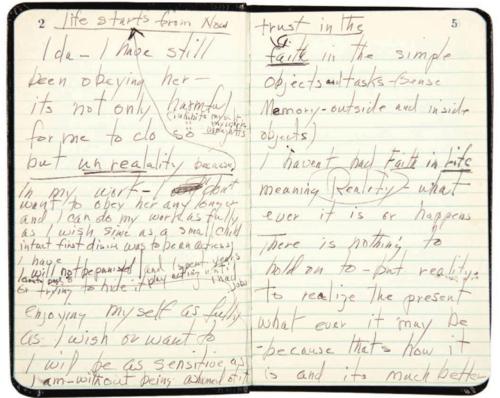 2 Life starts from Now
Ida - I have still
been obeying her -
its not only harmful
inhibits myself
my work
thoughts
for me to do so
but unreality because
In my work - I don't
want to obey her any longer
and I can do my work as fully
as I wish since as a small child
intact first desire was to be an actress
I have
and I spent years
I will not be punished
play acting until I had
or trying to hide it
jobs
enjoying myself as fully
as I wish or want to
I will be as sensitive as
I am - without being ashamed of it
5
trust in the
faith in the simple
objects and tasks - (sense
Memory - outside and inside
objects)
I havent had Faith in Life
meaning Reality - what
ever it is or happens
There is nothing to
hold on to - but reality
to realize the present
what ever it may be
- because thats how it
is and its much better